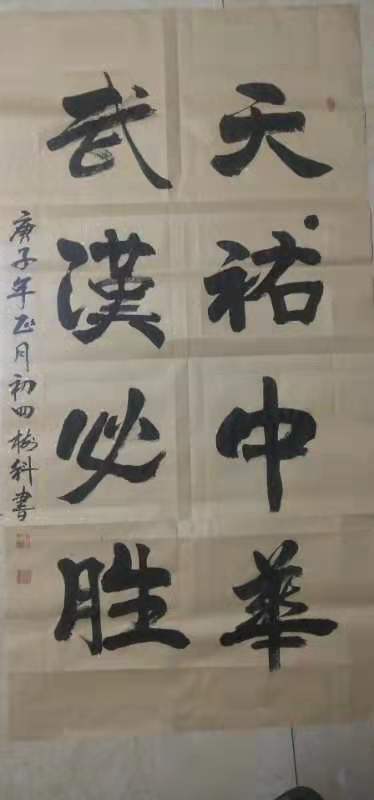 天祐中華
武漢必胜
庚子年正月初四梅科書